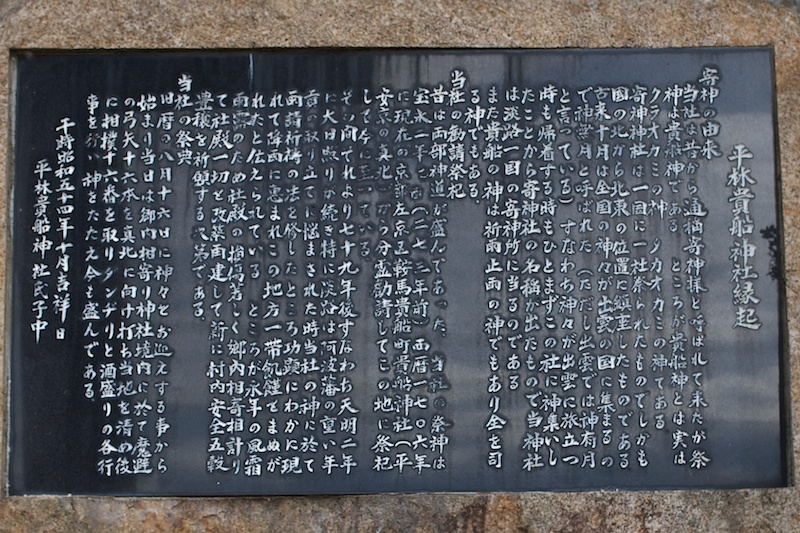 平林貴船神社縁起
寄神の由来
当社は昔から通称寄神様と呼ばれて来たが祭
神は貴船神である ところが貴船神とは実は
クラオカミの神 タカオカミの神である
寄神神社は一国に一社祭られたものでしかも
国の北から北東の位置に鎮座したものである
古来十月は全国の神々が出雲の国に集まるの
で神無月と呼ばれた(ただし出雲では神有月
と言っている)すなわち神々が出雲に旅立つ
時も帰着する時もひとまずこの社に神集いし
たことから寄神社の名称が出たもので当神社
は淡路一国の寄神所に当るのである
また貴船の神は祈雨止雨の神でもあり全を司
る神でもある
当社の勧請祭祀
昔は両部神道が盛んであった 当社の祭神は
宝永二年 (二七三年前)西暦一七〇六年
に現在の京都左京区鞍馬貴船町貴船神社(平
安京の真北)から分霊勧請してこの地に祭祀
して今に至っている
その間でれより七十九年後すなわち天明二年
に大日照りが続き特に淡路は阿波藩の重い年
貢の取り立てに悩まされた時当社の神に於て
雨請祈祷の法を修したところ功顕にわかに現
れて降雨に恵まれこの地方一帯飢饉をまぬが
れたと伝えられている ところが永年の風霜
雨露のため社殿の損傷著しく郷内相寄相計り
て社殿一切を改築再建して新に村内安全五穀
豊穣を祈願する次第である。
当社の祭典
旧暦の八月十六日に神々をお迎えする事から
始まり当日は郷内相寄り神社境内に於て魔避
の弓矢十六本を真北に向け打ち当地を清め後
に相撲十六番を取りダンヂリと酒盛りの各行
事を行い神をたたえ今も盛んである。
干時昭和五十四年十月吉祥日
平林貴船神社氏子中